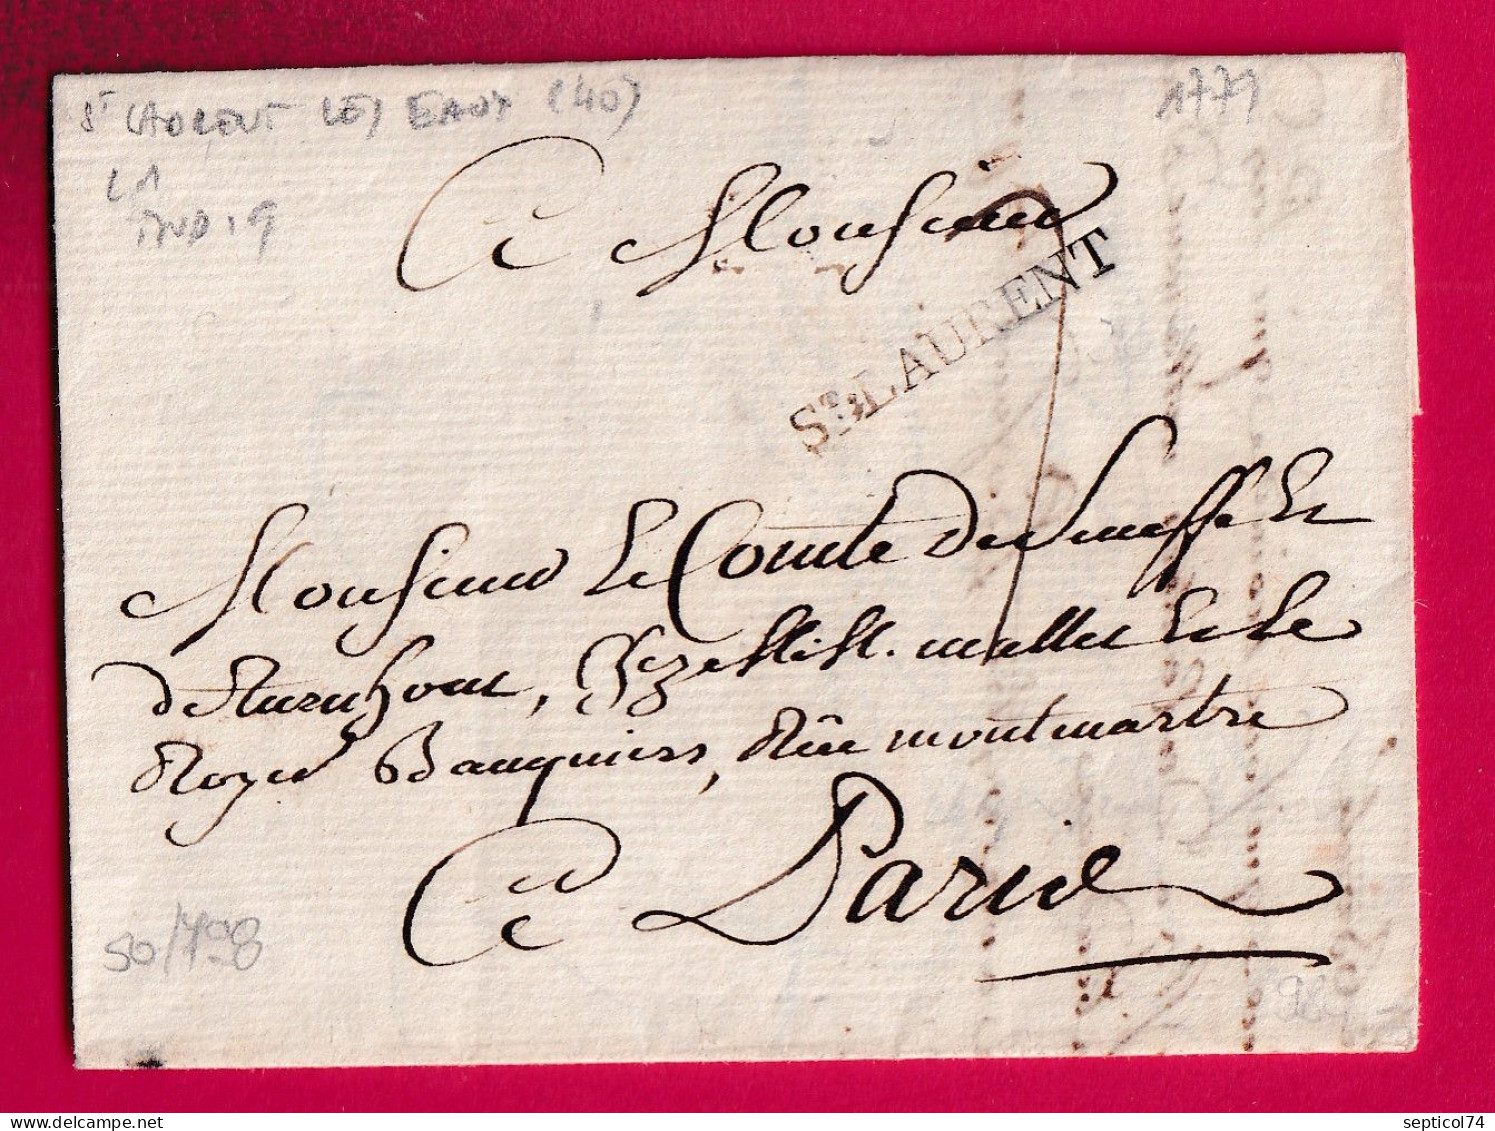 St LAURENT LES EAUX (40)
1779
L1
IND : 9
A Monsieur
St. LAURENT
Monsieur Le Comte De Sneffe Et
de Turnhout, chez Mallet Et Le
Royer Banquiers, Rüe montmartre
A Paris
50/798
septicol74